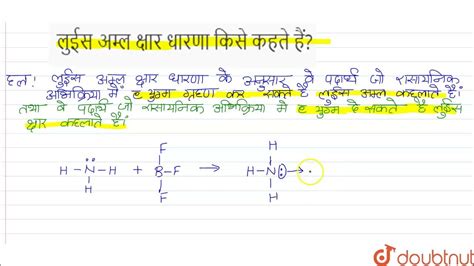 लुईस अम्ल क्षार धारणा किसे कहते हैं?
हल: लुईस अम्ल क्षार धारणा के अनुसार वे पदार्थ जो रासायनिक
अभिक्रिया में e युग्म ग्रहण कर सकते हैं लुईस अम्ल कहलाते हैं।
तथा वे पदार्थ जो रासायनिक अभिक्रिया में e युग्म दे सकते हैं लुईस
क्षार कहलाते हैं।
F H
H-N-H + B-F → H-N:→
H F H
doubtnut